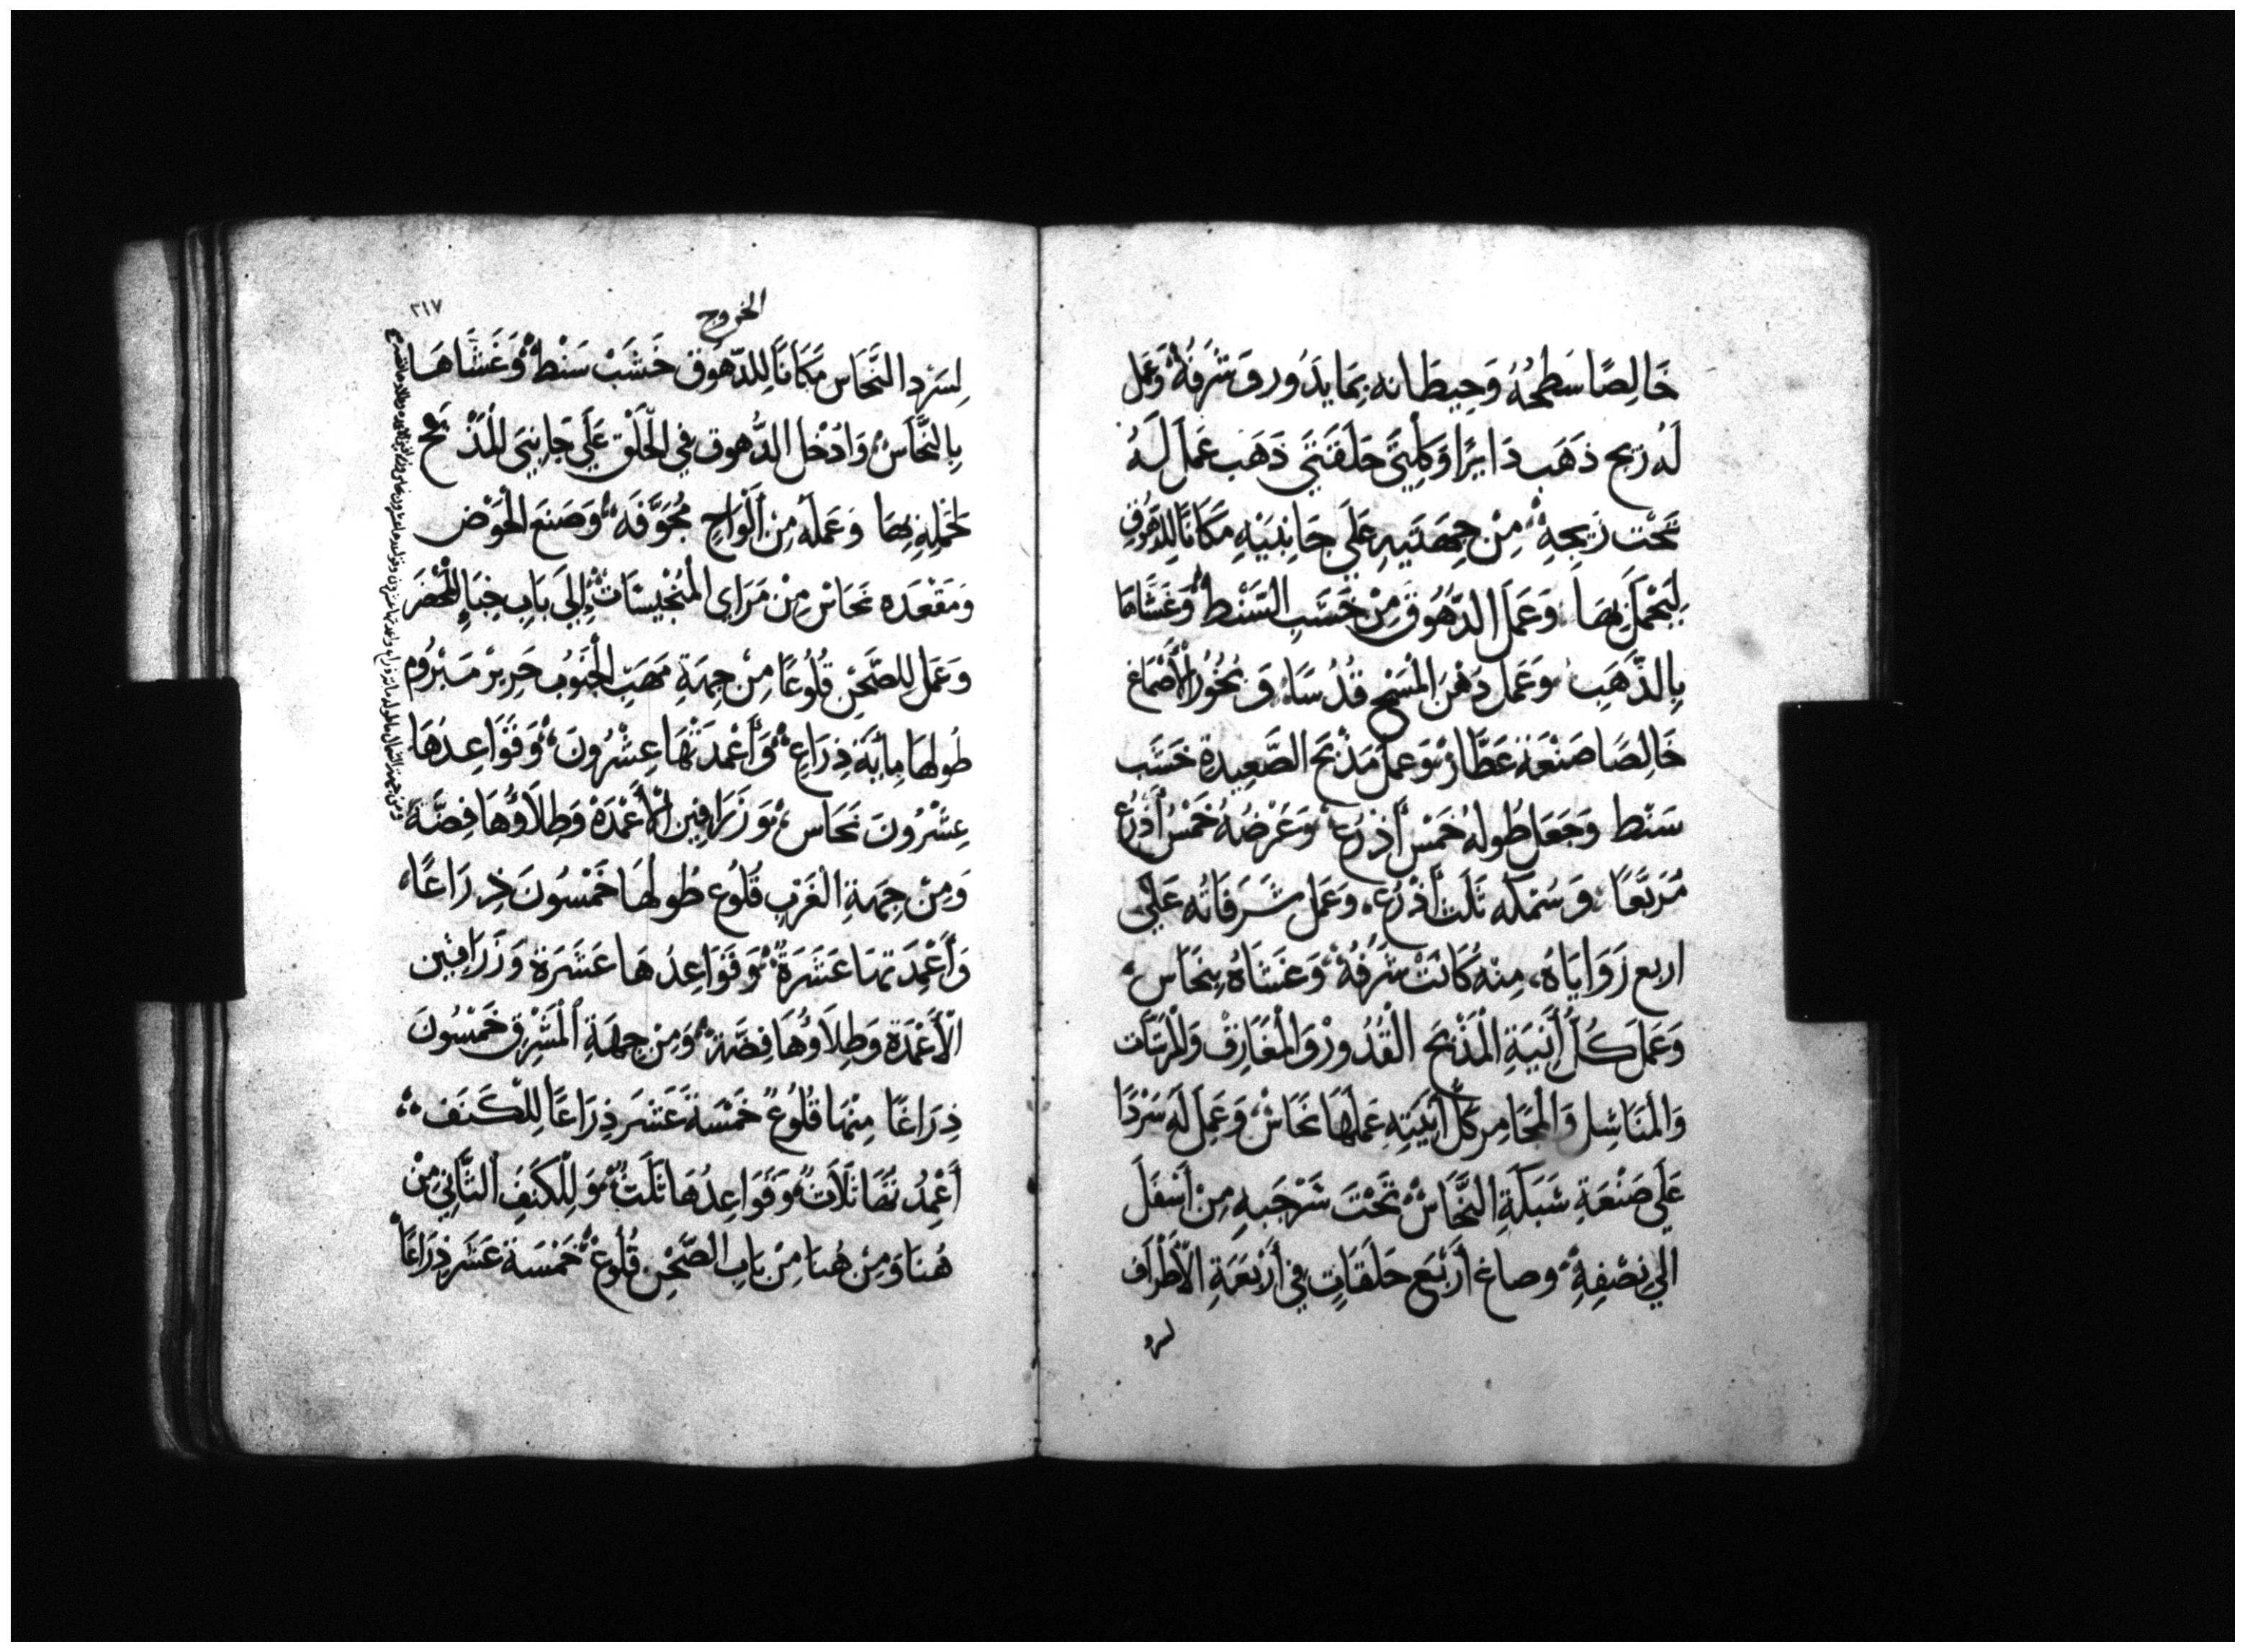 خَالِصًا سَطحُهُ وَحِيطَانه بِمَا يدَور وَشَرفَهُ وَعَمل
لَهُ زيح ذهَب دَايرًا وَكِلتَي حَلقَتَي ذَهَب عَمل لَهُ
تَحْت زيحِهِ مِنْ جِهَتَيهِ عَلَى جَانِبَيْهِ مَكَانًا لِلدهُوقِ
لِيَحْمل بِهَا وَعَمَل الدهُوقَ مِنْ خَشَبِ السَنْط وَغَشَّاهَا
بِالذَّهَبِ وَعَمَل دهْنَ المَسْحِ قدُسًا وَبخُور الأَصْمَاغ
خَالِصًا صَنْعَة عَطَّار وَعَمل مَذْبَح الصَّعِيدة خَشَب
سَنْط وَجَعَل طُولهُ خَمْس أَذْرُع وَعَرْضهُ خَمْس أَذْرُع
مُرَبَّعًا وَسُمْكه ثَلَث أَذْرُع وَعَمَل شَرَفَاتُه عَلَى
اربع زَوَايَاهُ مِنْه كَانَتْ شَرفُهُ وَغَشَّاهُ بِنحَاس
وَعَمَل كُلَّ أَنِيَةِ الْمَذْبَح الْقُدُورْ وَالْمغَارِفْ وَالْمرَشَّات
وَالمَنَاشِل وَالْمَجَامِر كُلّ أَنِيَتِهِ عَمِلهَا نحَاسْ وَعَمِل لَه سَرْدًا
عَلَى صَنْعَةِ شَبَكَةِ النحَّاسْ تَحْتَ سَرْجَبهِ مِنْ أَسْفَلَ
الي نِصْفِهِ وصاغ أَرْبَع حَلَقَاتٍ فِي أَرْبَعَةِ الأَطْرَاف
لسرد
الخروج
٢١٧
لِسَرْدِ النَّحَاس مَكَانًا لِلدّهُوق خَشَبْ سَنْط وَغَشَّاهَا
بِالنَّحَاسْ وَادْخل الدُّهوق فِي الْحَلَقِ عَلَي جَانِبَيِ الْمَذْبَح
لحَملِهِ بِهَا وَعَمَله مِنْ أَلْوَاحٍ مُجَوَّفَه وَصَنَع الْحَوْض
وَمَقْعَده نحَاسْ مِنْ مَرَاي المُنْجِيسَات إِلَي بَابِ خِبَاءِ المَحْضَر
وَعَمَل لِلصَّحْنِ قُلُوعًا مِنْ جِهَةِ مَهَبّ الْجَنُوبِ حَرِيرْ مَبْرُوم
طُولهَا مِايَة ذِرَاعٍ وَأَعْمِدَتُهَا عِشْرُونَ وَقَوَاعِدهَا
عِشْرُونَ نحَاس وَزَرَافِين الأَعْمدَة وَطِلَاؤُهَا فِضَّةً
وَمِنْ جِهَةِ الْغَرْبِ قُلُوع طُولهَا خَمْسُونَ ذِرَاعًا
وَأَعْمِدَتهَا عَشَرَةً وَقَوَاعِدُهَا عَشَرَة وَزَرَافِين
الأَعْمَدَة وَطِلَاؤُهَا فِضَّة وَمِنْ جِهَةِ الْمَشْرِق خَمْسُونَ
ذِرَاعًا مِنْهَا قُلُوعٌ خَمْسَة عَشَر ذِرَاعًا لِلْكَنَف
أَعْمِدُتهَا ثَلَاث وَقَوَاعِدُهَا ثَلَث وَلِلْكَنَفِ الثَّانِي مِنْ
هُنَا وَمِنْ هُنَا مِنْ بَابِ الصَّحْنِ قُلُوعْ خَمْسَة عَشَر ذِرَاعًا